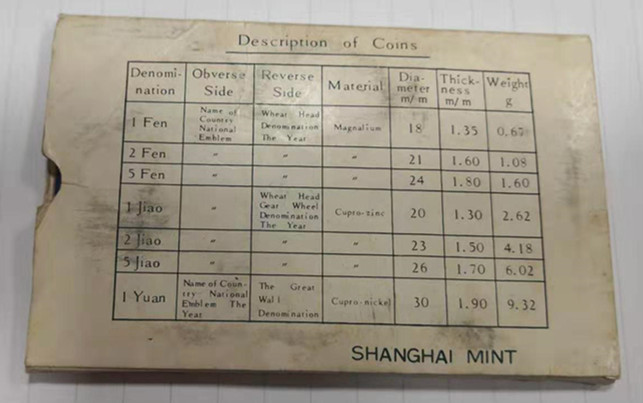 Description of Coins
Denomi-nation Obverse Side Reverse Side Material Dia-meter m/m Thick-ness m/m Weight g
1 Fen Name of Country National Emblem Wheat Head Denomination The Year Magnalium 18 1.35 0.67
2 Fen " " " 21 1.60 1.08
5 Fen " " " 24 1.80 1.60
1 Jiao " Wheat Head Gear Wheel Denomination The Year Cupro-zinc 20 1.30 2.62
2 Jiao " " " 23 1.50 4.18
5 Jiao " " " 26 1.70 6.02
1 Yuan Name of Coun-try National Emblem The Year The Great Wall Denomination Cupro-nickel 30 1.90 9.32
SHANGHAI MINT